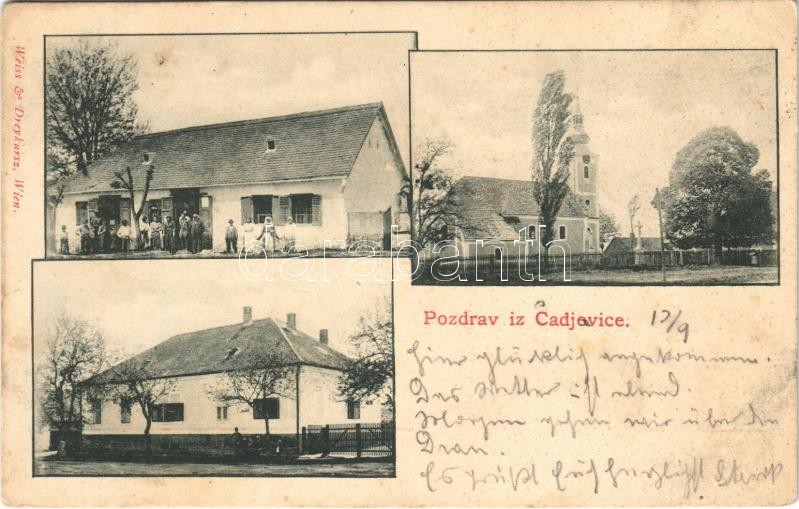 Weiss & Dreykurs, Wien.
darabanth
Pozdrav iz Čadjevice. 12/9
Hier glücklich angekommen.
Das Wetter ist elend.
Morgen gehen wir über die
Drau.
Es grüßt Euch herzlichst